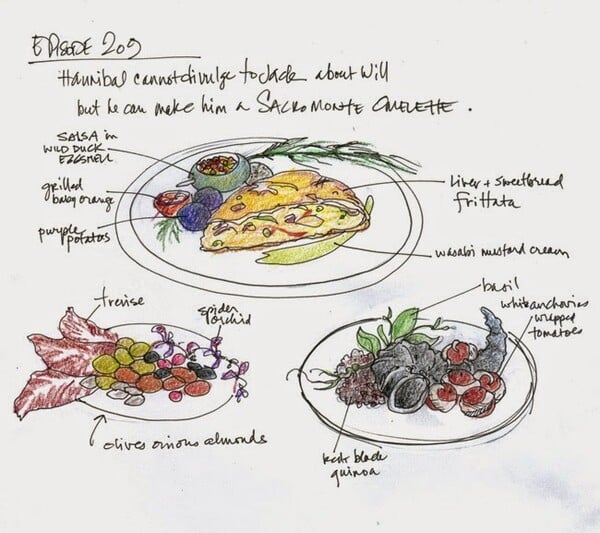 EPISODE 209
Hannibal cannot divulge to Jack about Will
but he can make him a SACROMONTE OMELETTE.
SALSA in
WILD DUCK
EGGSHELL
grilled
baby orange
purple
potatoes
Liver + sweetbread
frittata
wasabi mustard cream
basil
white anchovies
wrapped
tomatoes
trevise
spider
orchid
olives onions almonds
black
quinoa